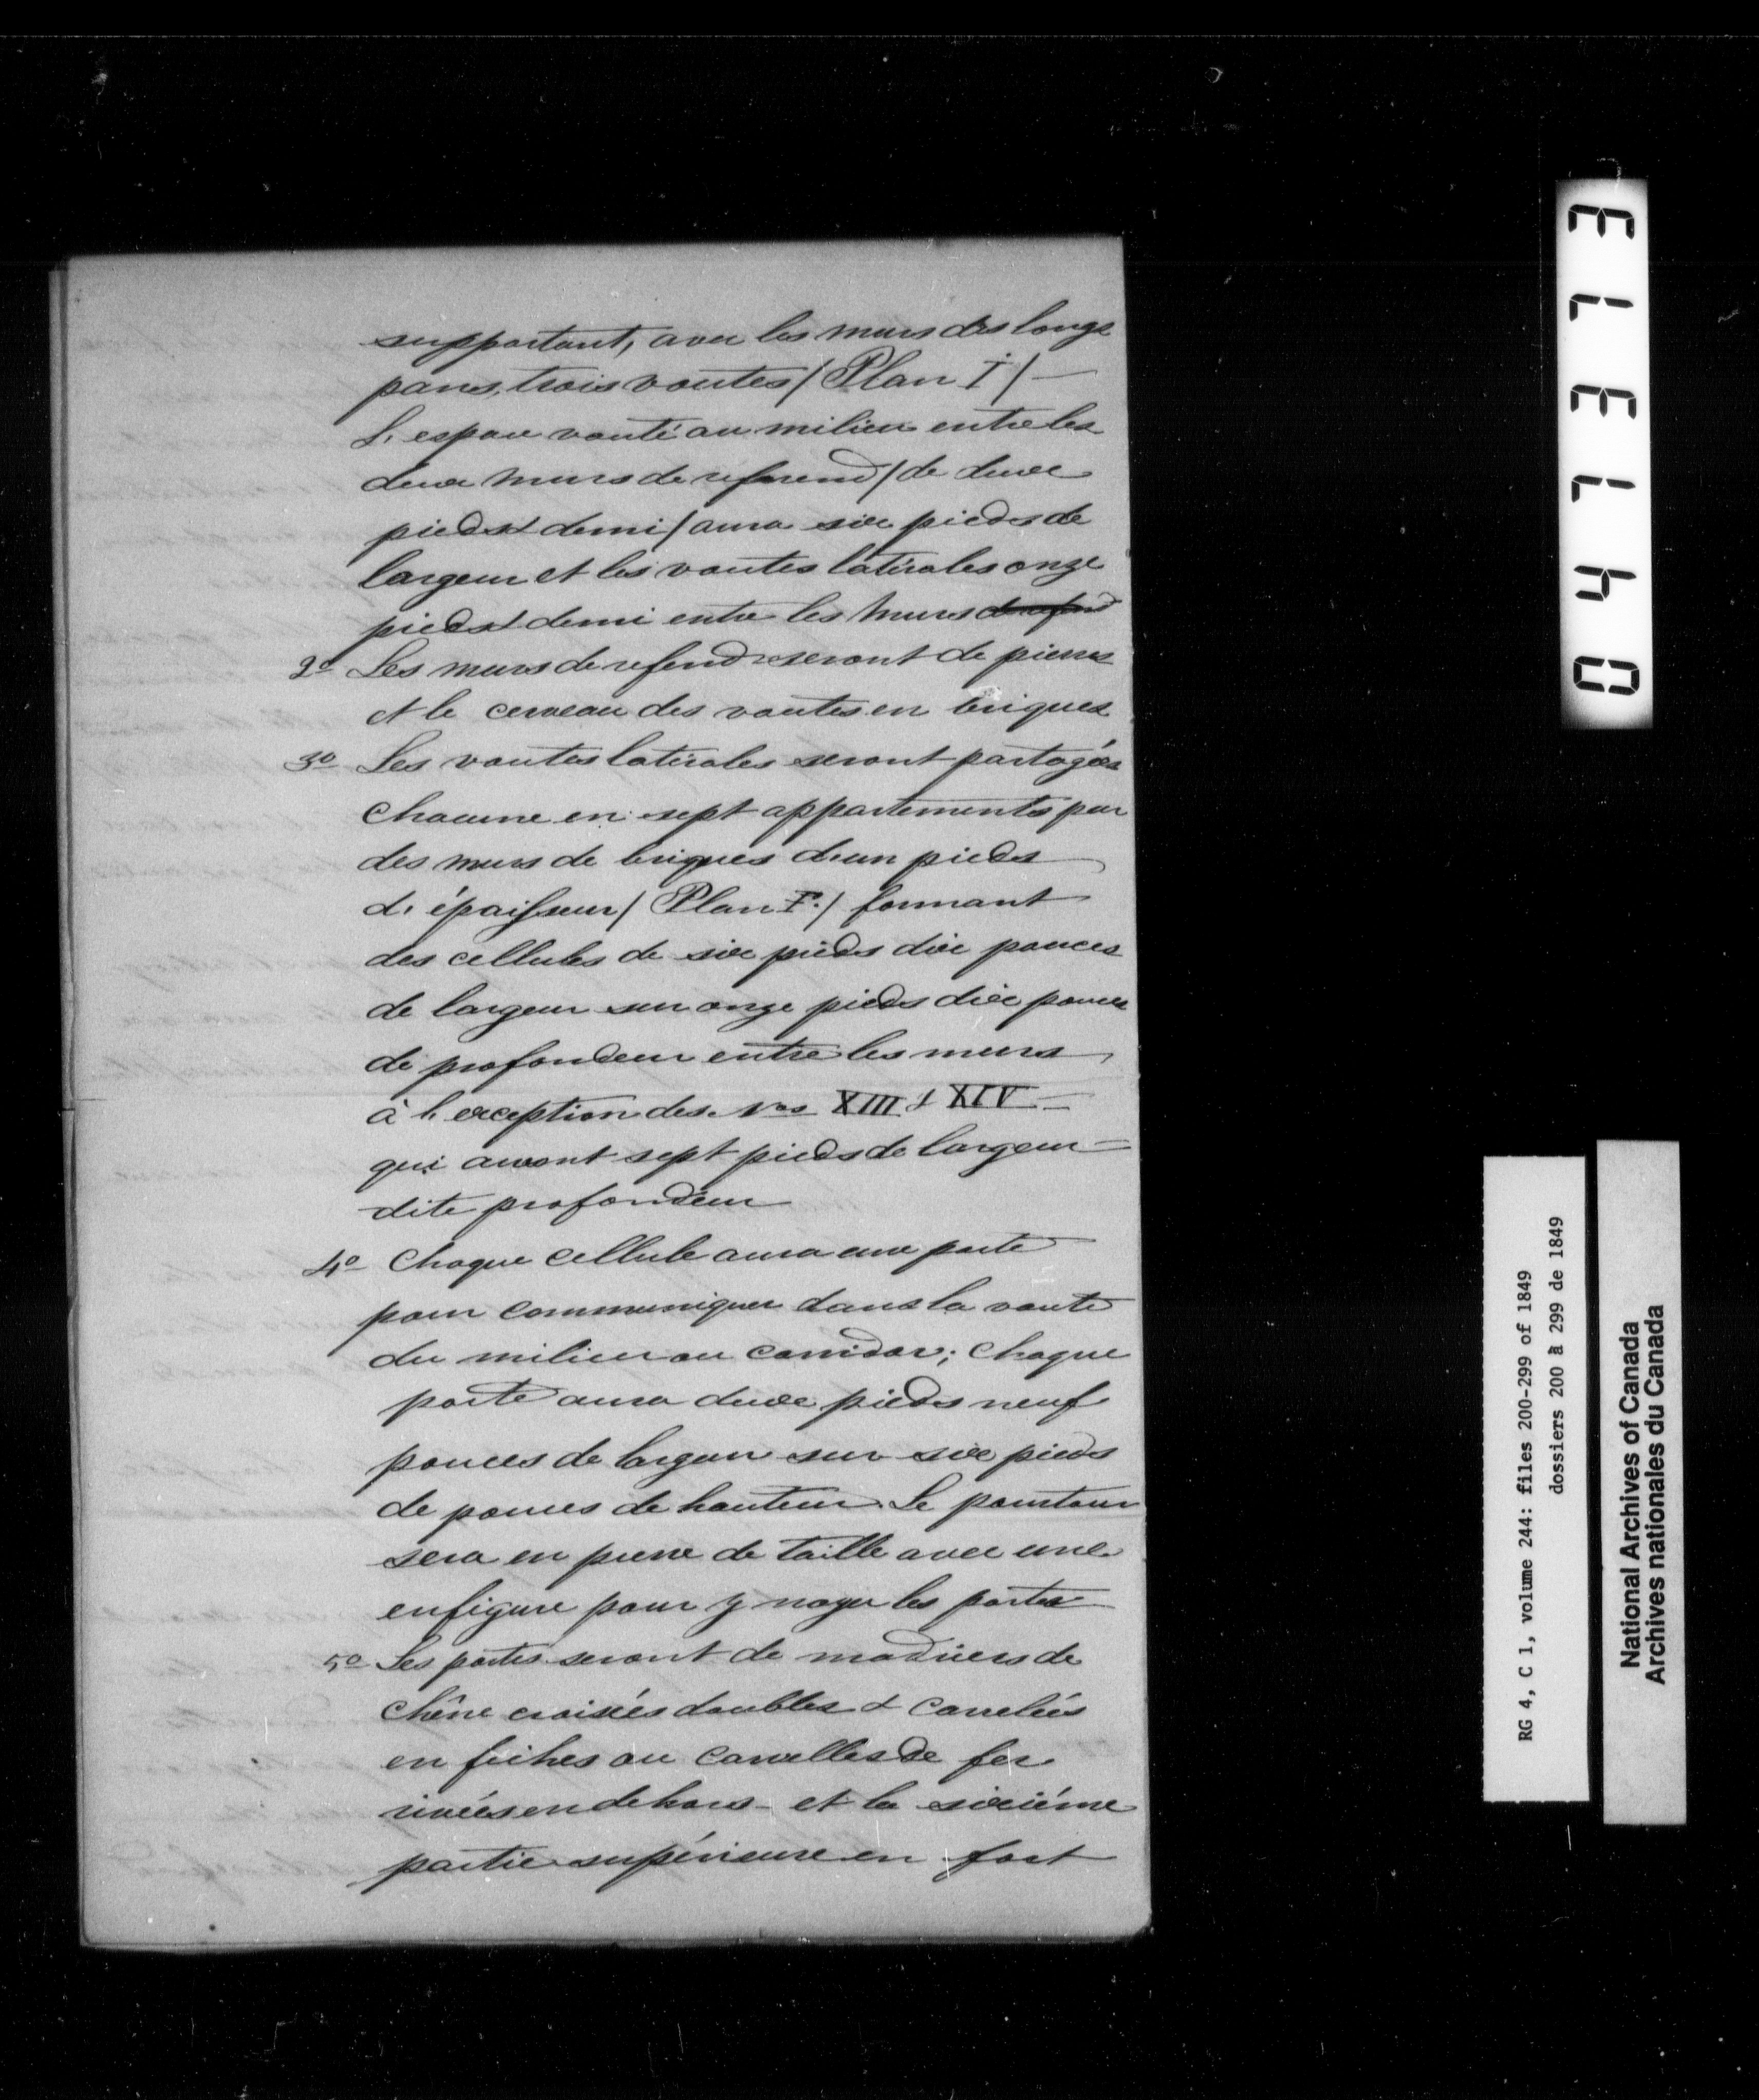 supportant, avec les murs des longs
pans, trois voutes / Plan I / —
L'espace vouté au milieu entre les
deux murs de refend / de deux
pieds & demi / aura six pieds de
largeur et les voutes latérales onze
pieds & demi entre les murs de refend
2o Les murs de refend seront de pierres
et le cerveau des voutes en briques
3o Les voutes latérales seront partagées
chacune en sept appartements par
des murs de briques d'un pieds
d'épaisseur / Plan I. / formant
des cellules de six pieds dix pouces
de largeur sur onze pieds dix pouces
de profondeur entre les murs,
à l'exception des Nos XIII & XIV —
qui auront sept pieds de largeur —
dite profondeur
4o Chaque cellule aura une porte
pour communiquer dans la voute
du milieu ou corridor; chaque
porte aura deux pieds neuf
pouces de largeur sur six pieds
de pouces de hauteur. Le pourtour
sera en pierre de taille avec une
pour y noyer les portes
5o Les portes seront de madriers de
chêne croisés doubles &
en fiches ou de fer
rivées en dehors - et la sixiéme
partie supérieure en fort
04173173
RG 4, C 1, volume 244: files 200-299 of 1849
dossiers 200 à 299 de 1849
National Archives of Canada
Archives nationales du Canada